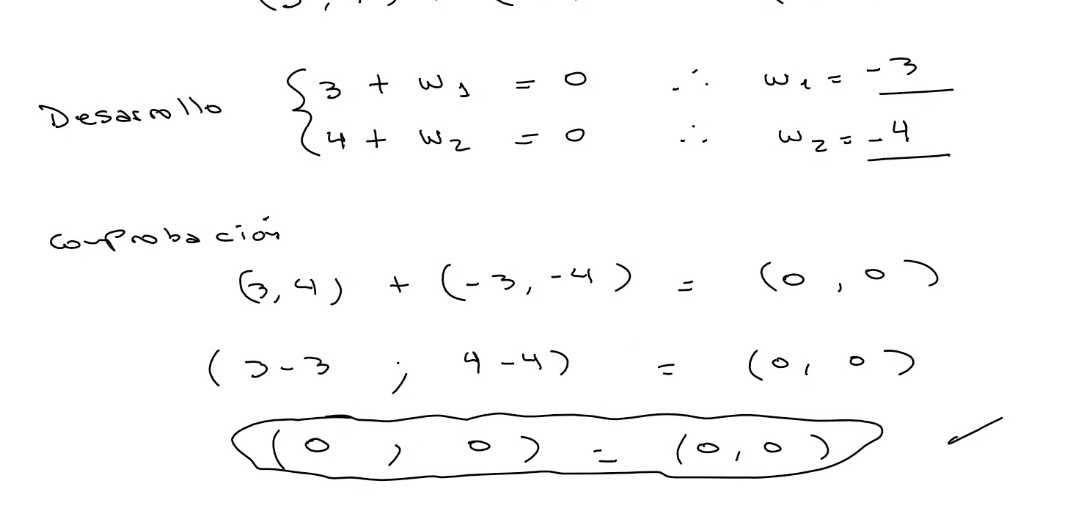 Desarrollo { 3 + w1 = 0 ∴ w1 = -3
4 + w2 = 0 ∴ w2 = -4
Comprobación
(3, 4) + (-3, -4) = (0, 0)
(3-3 ; 4-4) = (0, 0)
(0, 0) = (0, 0) ✓